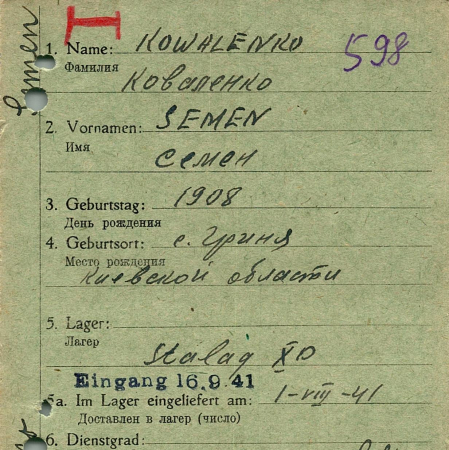 Semen
I
1. Name: KOWALENKO
598
Фамилия
Коваленко
2. Vornamen: SEMEN
Имя
Семен
3. Geburtstag: 1908
День рождения
4. Geburtsort: с. Гриня
Место рождения
Киевской области
5. Lager:
Лагер
Stalag XD
Eingang 16.9.41
5a. Im Lager eingeliefert am: 1-VIII-41
Доставлен в лагер (число)
6. Dienstgrad: